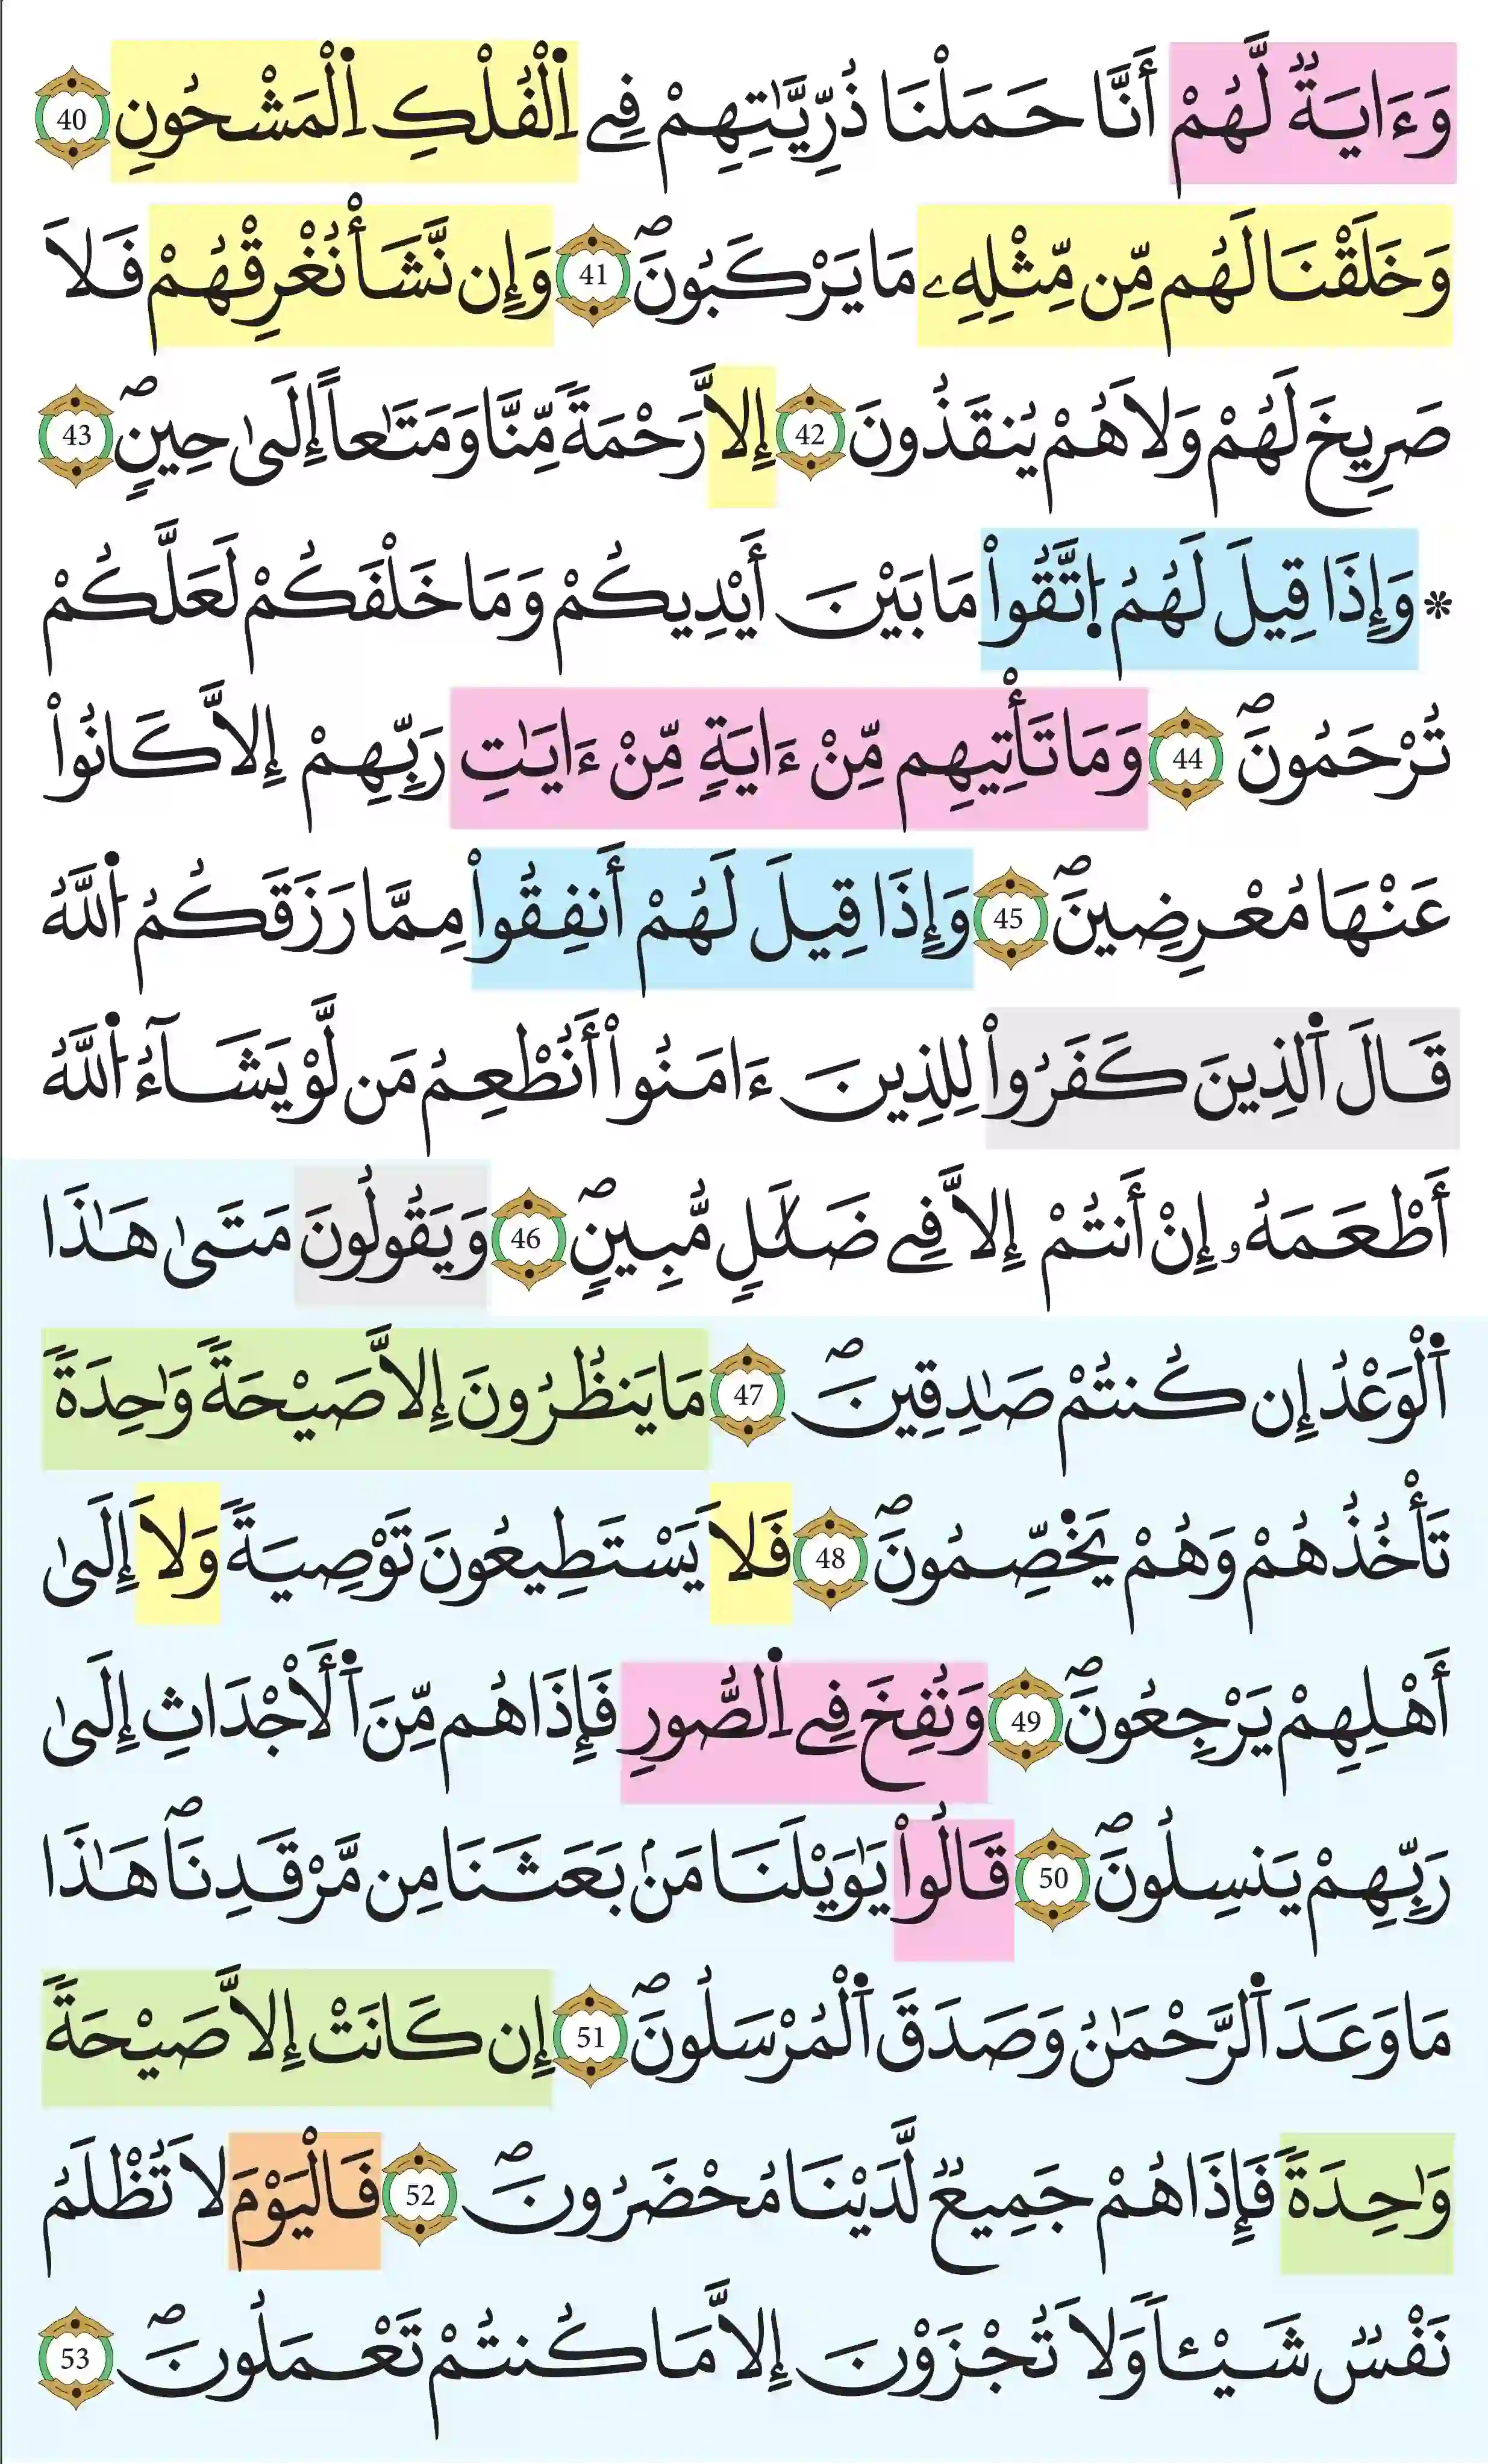 وَءَايَةٞ لَّهُمُۥٓ أَنَّا حَمَلْنَا ذُرِّيَّٰتِهِمْ فِے اِ۬لْفُلْكِ اِ۬لْمَشْحُونِ 40
وَخَلَقْنَا لَهُم مِّن مِّثْلِهِۦ مَا يَرْكَبُونَۖ 41 وَإِن نَّشَأْ نُغْرِقْهُمْ فَلَا
صَرِيخَ لَهُمْ وَلَا هُمْ يُنقَذُونَ 42 إِلَّا رَحْمَةٗ مِّنَّا وَمَتَٰعاً إِلَىٰ حِينٖۖ 43
* وَإِذَا قِيلَ لَهُمُ اُ۪تَّقُواْ مَا بَيْنَ أَيْدِيكُمْ وَمَا خَلْفَكُمْ لَعَلَّكُمْ
تُرْحَمُونَۖ 44 وَمَا تَأْتِيهِم مِّنْ ءَايَةٖ مِّنْ ءَايَٰتِ رَبِّهِمْ إِلَّا كَانُواْ
عَنْهَا مُعْرِضِينَۖ 45 وَإِذَا قِيلَ لَهُمْ أَنفِقُواْ مِمَّا رَزَقَكُمُ اُ۬للَّهُ
قَالَ اَ۬لذِينَ كَفَرُواْ لِلذِينَ ءَامَنُواْ أَنُطْعِمُ مَن لَّوْ يَشَآءُ اُ۬للَّهُ
أَطْعَمَهُۥ إِنْ أَنتُمْ إِلَّا فِے ضَلَٰلٖ مُّبِينٖۖ 46 وَيَقُولُونَ مَتَىٰ هَٰذَا
اَ۬لْوَعْدُ إِن كُنتُمْ صَٰدِقِينَۖ 47 مَا يَنظُرُونَ إِلَّا صَيْحَةٗ وَٰحِدَةٗ
تَأْخُذُهُمْ وَهُمْ يَخْصِّمُونَۖ 48 فَلَا يَسْتَطِيعُونَ تَوْصِيَةٗ وَلَا إِلَىٰ
أَهْلِهِمْ يَرْجِعُونَۖ 49 وَنُفِخَ فِے اِ۬لصُّورِ فَإِذَا هُم مِّنَ اَ۬لْأَجْدَاثِ إِلَىٰ
رَبِّهِمْ يَنسِلُونَۖ 50 قَالُواْ يَٰوَيْلَنَا مَنۢ بَعَثَنَا مِن مَّرْقَدِنَاۖ هَٰذَا
مَا وَعَدَ اَ۬لرَّحْمَٰنُ وَصَدَقَ اَ۬لْمُرْسَلُونَۖ 51 إِن كَانَتْ إِلَّا صَيْحَةٗ
وَٰحِدَةٗ فَإِذَا هُمْ جَمِيعٞ لَّدَيْنَا مُحْضَرُونَۖ 52 فَالْيَوْمَ لَا تُظْلَمُ
نَفْسٞ شَيْـٔاٗ وَلَا تُجْزَوْنَ إِلَّا مَا كُنتُمْ تَعْمَلُونَۖ 53